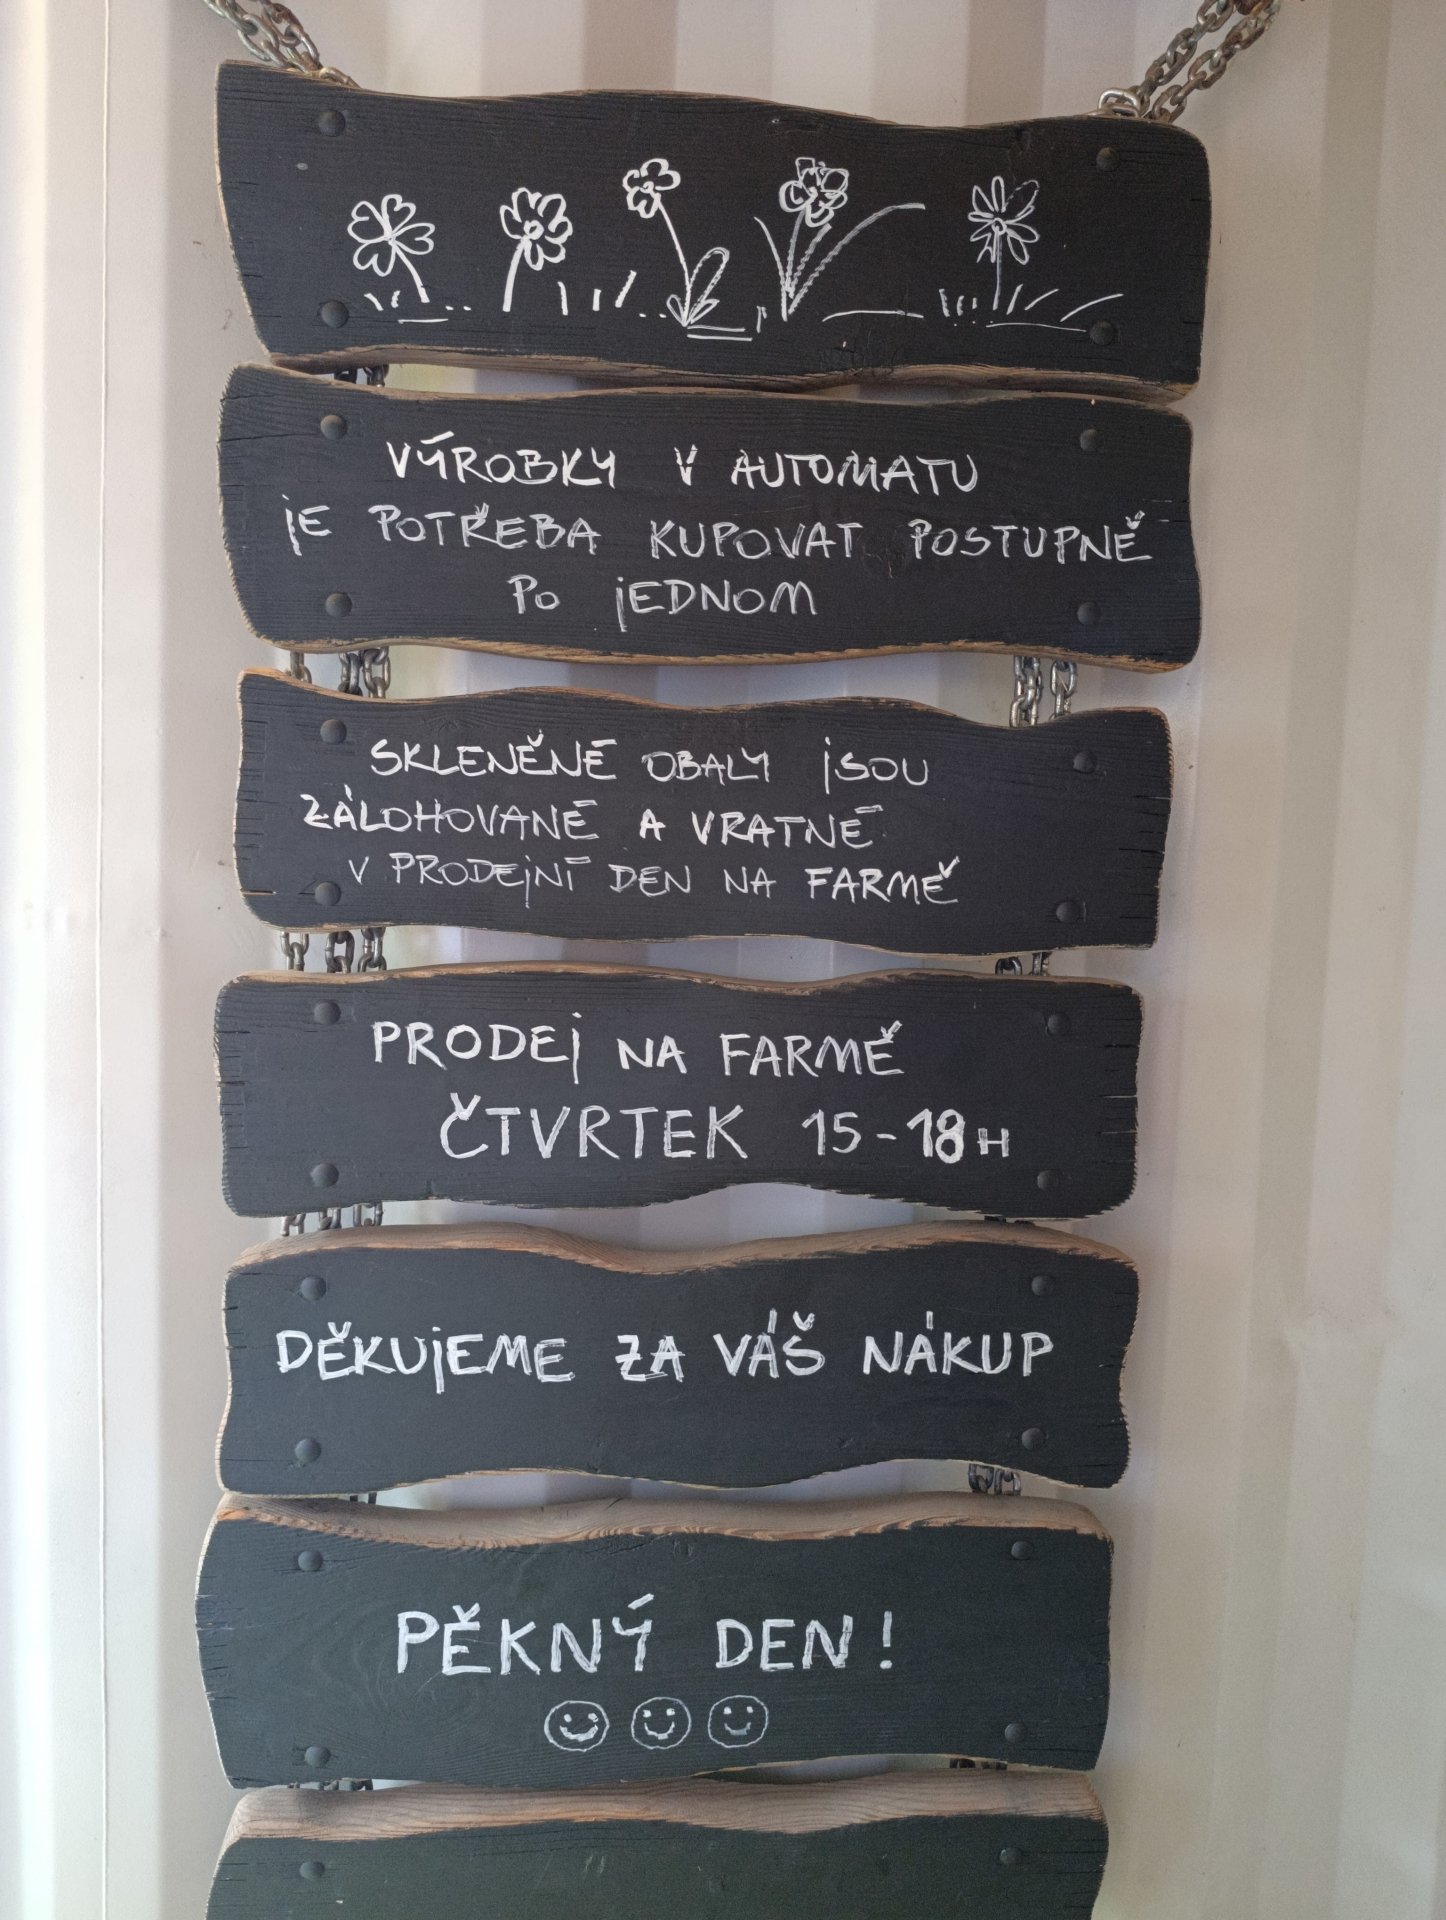 VÝROBKY V AUTOMATU
JE POTŘEBA KUPOVAT POSTUPNĚ
PO JEDNOM
SKLENĚNÉ OBALY JSOU
ZÁLOHOVANÉ A VRATNÉ
V PRODEJNÍ DEN NA FARMĚ
PRODEJ NA FARMĚ
ČTVRTEK 15-18H
DĚKUJEME ZA VÁŠ NÁKUP
PĚKNÝ DEN!